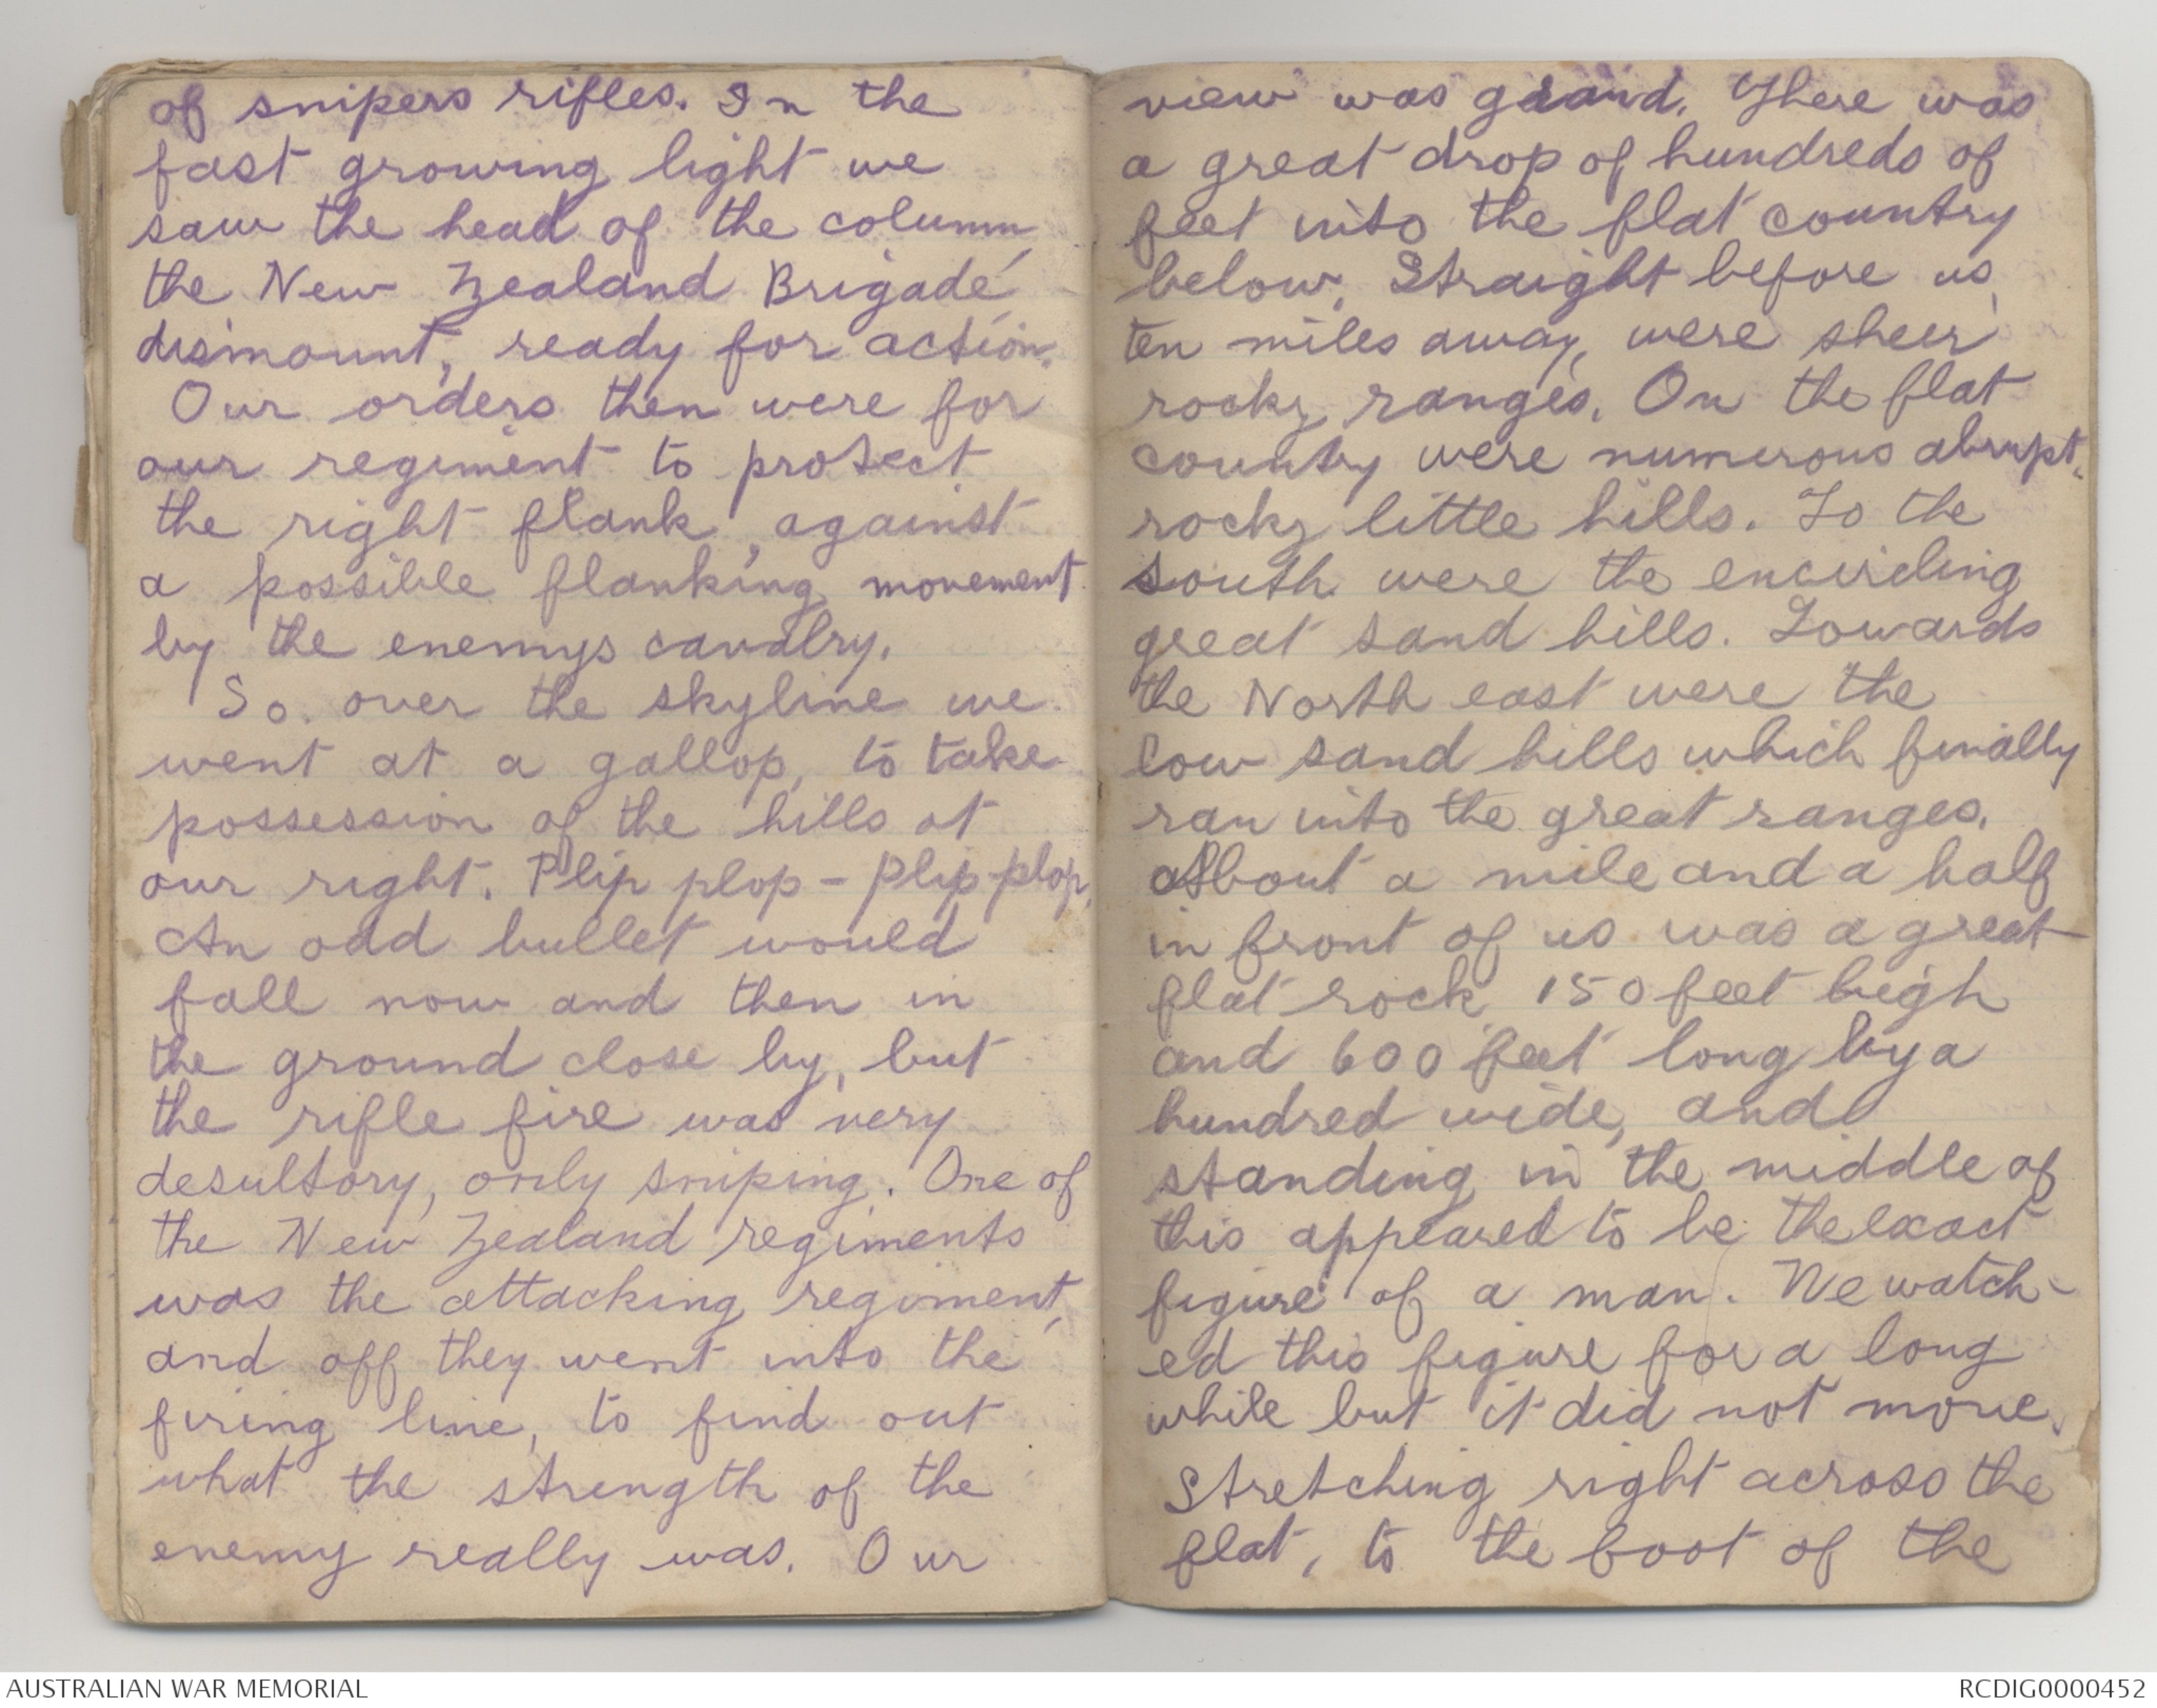 of snipers rifles. In the
fast growing light we
saw the head of the column,
the New Zealand Brigade,
dismount, ready for action.
Our orders then were for
our regiment to protect
the right flank, against
a possible flanking movement
by the enemys cavalry.
So over the skyline we
went at a gallop, to take
possession of the hills at
our right. Plip plop - plip-plop,
An odd bullet would
fall now and then in
the ground close by, but
the rifle fire was very
desultory, only sniping. One of
the New Zealand regiments
was the attacking regiment,
and off they went into the
firing line, to find out
what the strength of the
enemy really was. Our
view was grand. There was
a great drop of hundreds of
feet into the flat country
below. Straight before us,
ten miles away, were sheer
rocky ranges. On the flat
country were numerous abrupt,
rocky little hills. To the
south were the encircling
great sand hills. Towards
the North east were the
low sand hills which finally
ran into the great ranges.
About a mile and a half
in front of us was a great
flat rock 150 feet high
and 600 feet long by a
hundred wide, and
standing in the middle of
this appeared to be the exact
figure of a man. We watch-
ed this figure for a long
while but it did not move.
Stretching right across the
flat, to the foot of the
AUSTRALIAN WAR MEMORIAL
RCDIG0000452